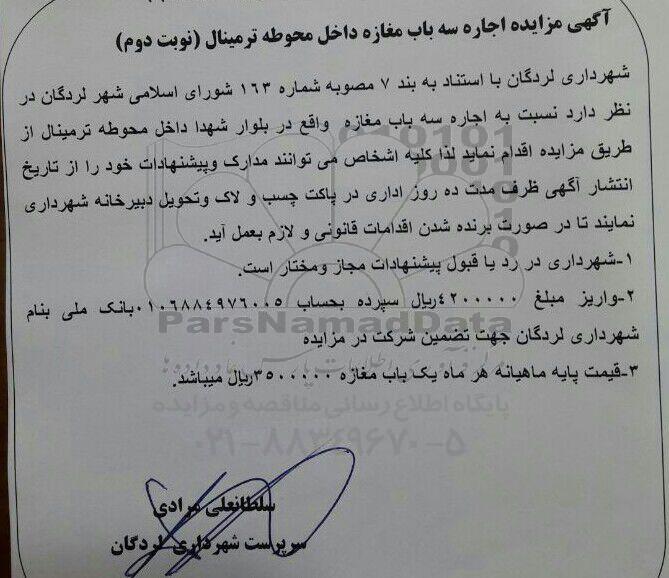 آگهی مزایده اجاره سه باب مغازه داخل محوطه ترمینال (نوبت دوم)
شهرداری لردگان با استناد به بند ۷ مصوبه شماره ۱۶۳ شورای اسلامی شهر لردگان در
نظر دارد نسبت به اجاره سه باب مغازه واقع در بلوار شهدا داخل محوطه ترمینال از
طریق مزایده اقدام نماید لذا کلیه اشخاص می توانند مدارک وپیشنهادات خود را از تاریخ
انتشار آگهی ظرف مدت ده روز اداری در پاکت چسب و لاک وتحویل دبیرخانه شهرداری
نمایند تا در صورت برنده شدن اقدامات قانونی و لازم بعمل آید.
۱-شهرداری در رد یا قبول پیشنهادات مجاز ومختار است.
۲-واریز مبلغ ۴۲۰۰۰۰۰ریال سپرده بحساب ۰۱۰۶۸۸۴۹۷۶۰۰۵بانک ملی بنام
ParsNamadData
شهرداری لردگان جهت تضمین شرکت در مزایده
۳-قیمت پایه ماهیانه هر ماه یک باب مغازه ۳۵۰۰۰۰۰ریال میباشد.
پایگاه اطلاع رسانی مناقصه و مزایده
۰۲۱-۸۸۳۴۹۶۷۰-۵
سلطانعلی مرادی
سرپرست شهرداری لردگان